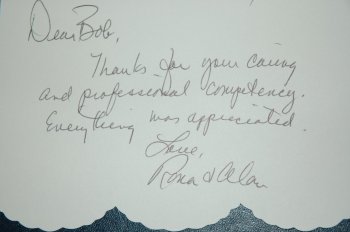 Dear Bob,
Thanks for your caring
and professional competency.
Everything was appreciated.
Love,
Rona & Alan